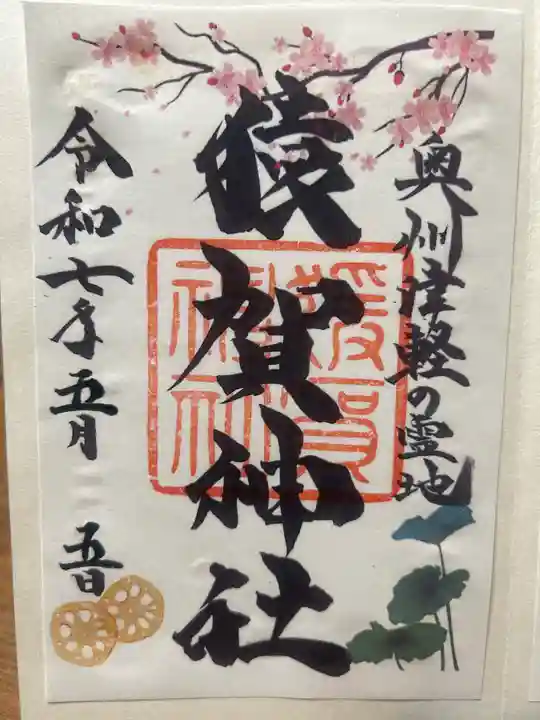 奥州津軽の霊地
猿賀神社
令和七年五月五日
猿賀神社